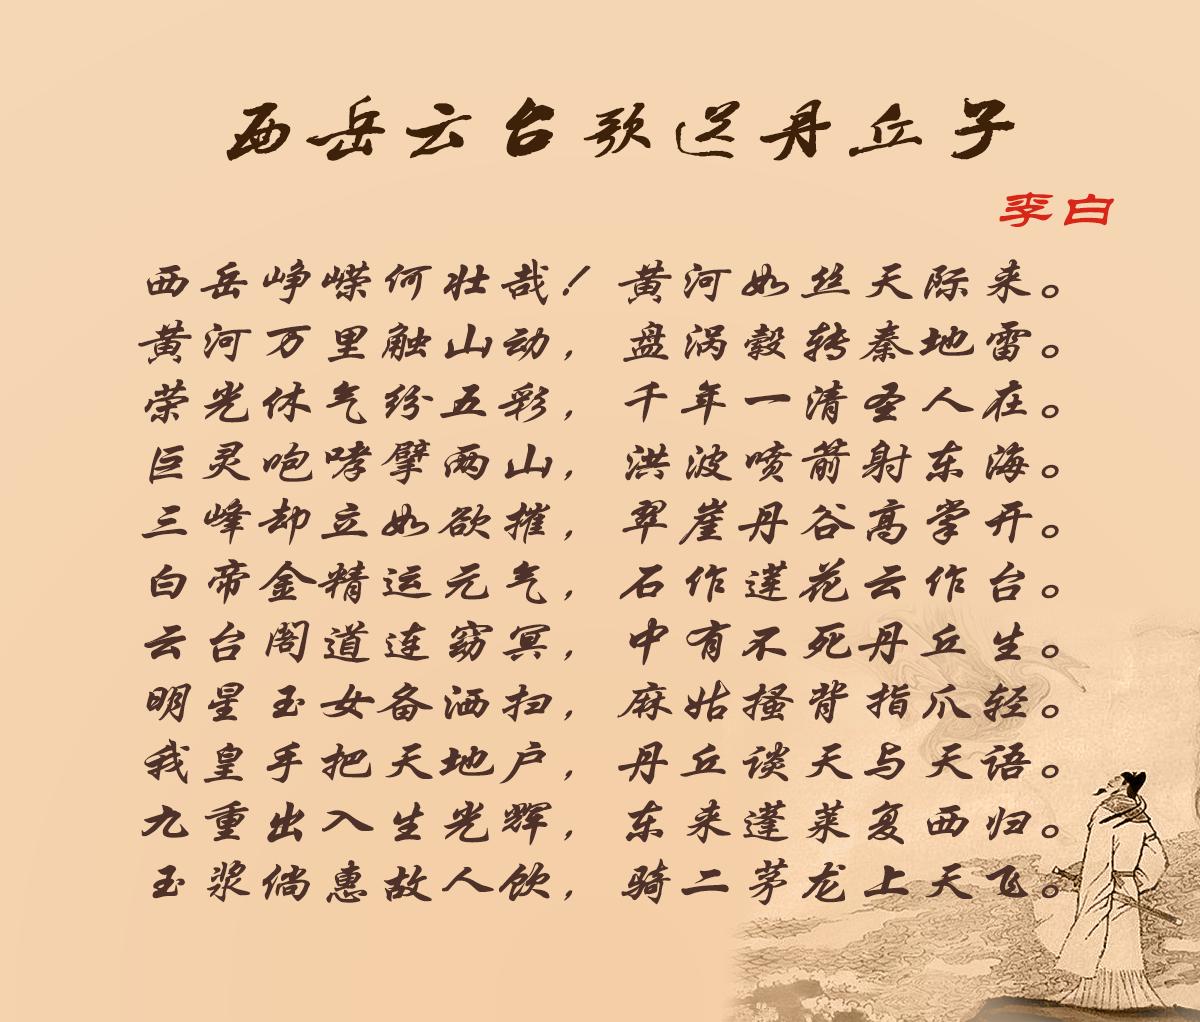 西岳云台歌送丹丘子
李白
西岳峥嵘何壮哉！黄河如丝天际来。
黄河万里触山动，盘涡毂转秦地雷。
荣光休气纷五彩，千年一清圣人在。
巨灵咆哮擘两山，洪波喷箭射东海。
三峰却立如欲摧，翠崖丹谷高掌开。
白帝金精运元气，石作莲花云作台。
云台阁道连窈冥，中有不死丹丘生。
明星玉女备洒扫，麻姑搔背指爪轻。
我皇手把天地户，丹丘谈天与天语。
九重出入生光辉，东来蓬莱复西归。
玉浆倘惠故人饮，骑二茅龙上天飞。